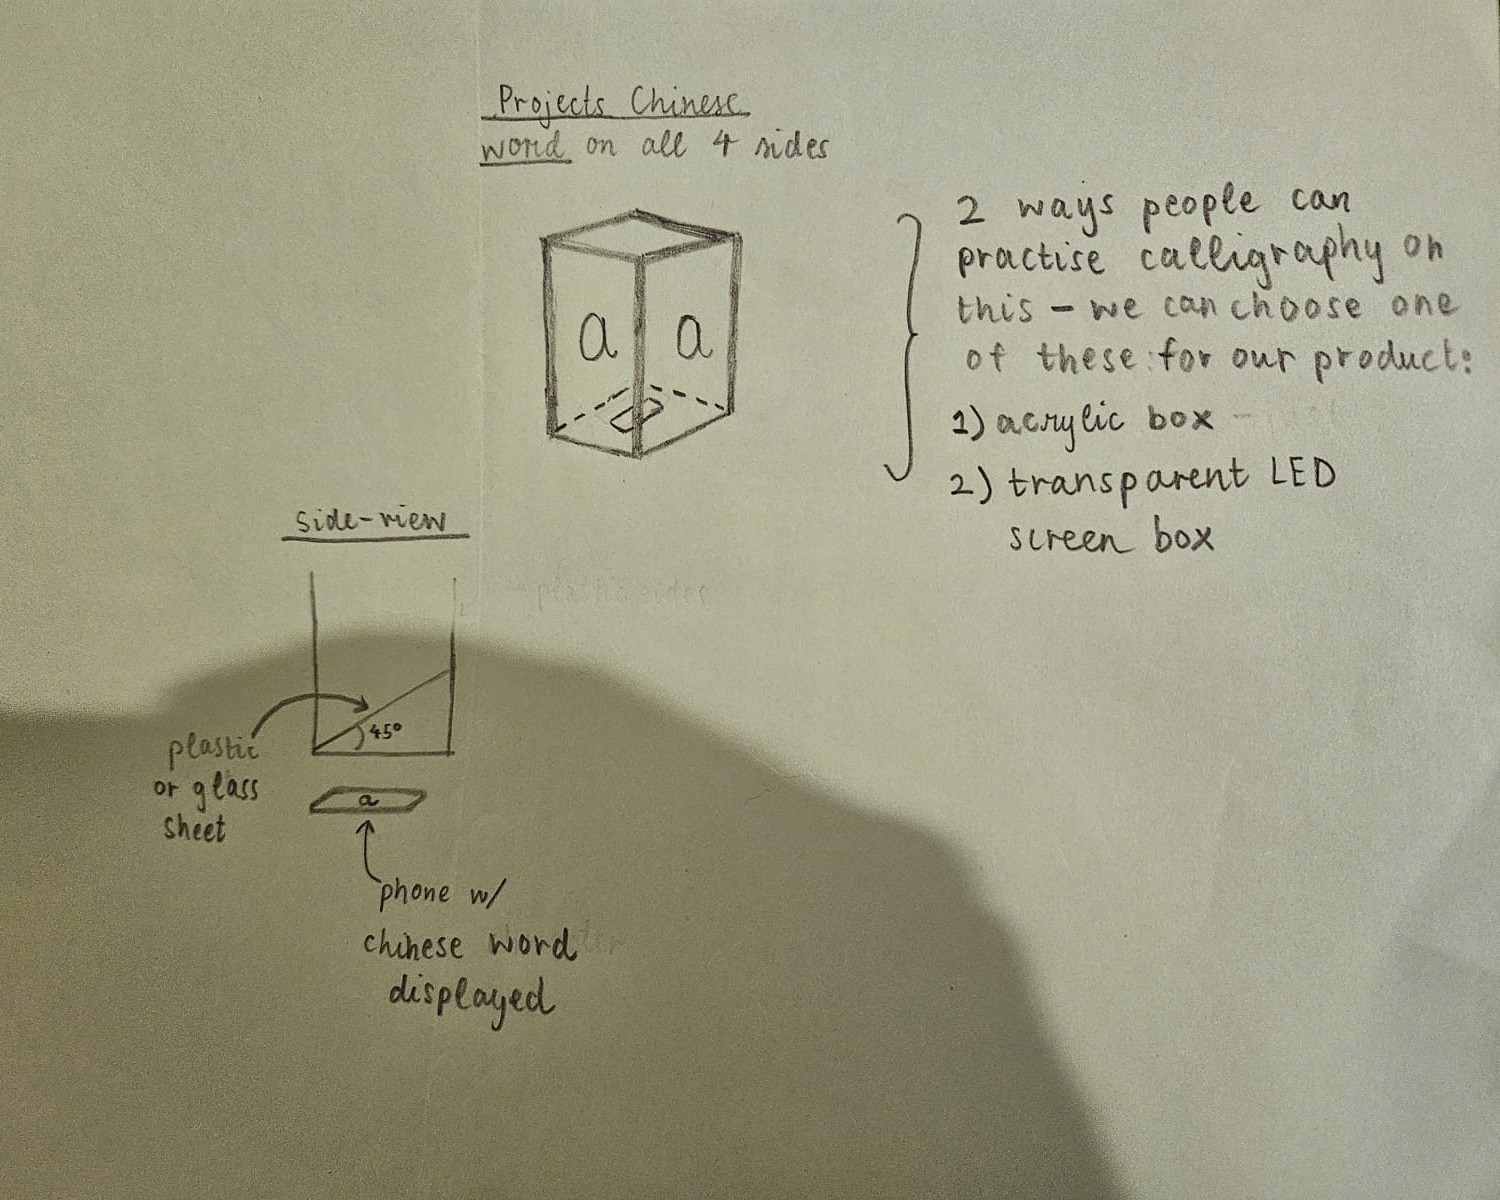 Projects Chinese
word on all 4 sides
a a
2 ways people can
practise calligraphy on
this – we can choose one
of these for our product:
1) acrylic box
2) transparent LED
screen box
side-view
45°
plastic
or glass
sheet
a
phone w/
chinese word
displayed